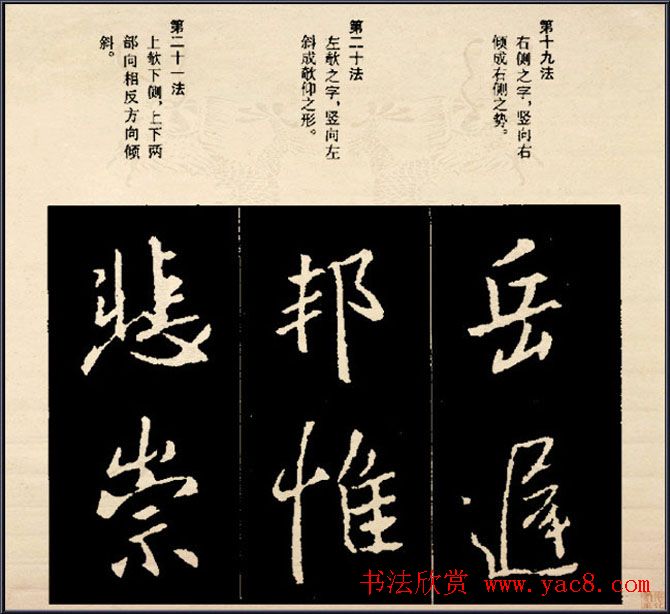 第十九法
右侧之字，竖向右
倾成右侧之势。
第二十法
左欹之字，竖向左
斜成欹仰之形。
第二十一法
上欹下侧，上下两
部向相反方向倾
斜。
岳
邦惟
悲崇
书法欣赏 www.yac8.com